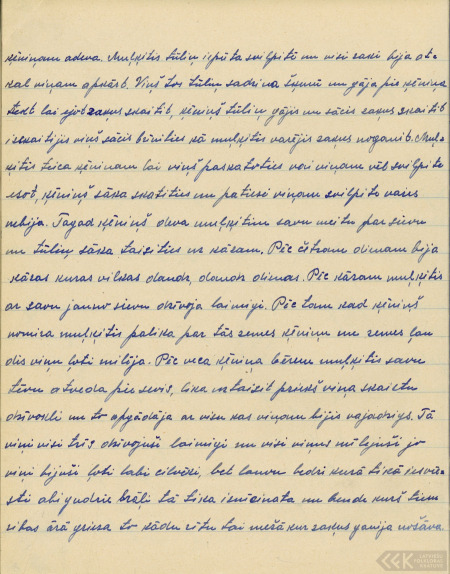 ķēniņam adeva. Muļķītis tūliņ iepūta svilpītē un visi zaķi bija at-
kal viņam apkārt. Viņš tos tūliņ sadzina šķūnī un gāja pie ķēniņa
teikt lai ejot zaķus skaitīt, ķēniņš tūliņ gājis un sācis zaķus skaitīt
izskaitijis viņš sācis brīnīties kā muļķītis varējis zaķus noganīt. Muļ-
ķītis teica ķēniņam lai viņš paskatoties vai viņam vēl svilpīte
esot, ķēniņš sāka skatīties un patiesi viņam svilpīte vairs
nebija. Tagad ķēniņš deva muļķītim savu meitu par sievu
un tūliņ sāka taisīties uz kāzām. Pēc četrām dienam bija
kāzas kuras vilkās daudz, daudz dienas. Pēc kāzam muļķītis
ar savu jauno sievu dzīvoja laimīgi. Pēc tam kad ķēniņš
nomira muļķītis palika par tās zemes ķēniņu un zemes ļau
dis viņu ļoti mīlēja. Pēc vecā ķēniņa bērem muļķītis savu
tēvu atveda pie sevis, lika uztaisīt priekš viņa skaistu
dzīvokli un to apgādāja ar visu kas viņam bijis vajadzīgs. Tā
viņi visi trīs dzīvojuši laimīgi un visi viņus mīlējuši jo
viņi bijuši ļoti labi cilvēki, bet lauvu bedrē kurā tikā iesvie-
sti abi gudrie brāļi tā tika iznīcināta un bende kurš tiem
sibas ārā grieza to kādu rītu tai mežā kur zaķus ganīja nošāva.
LATVIEŠU
FOLKLORAS
KRĀTUVE